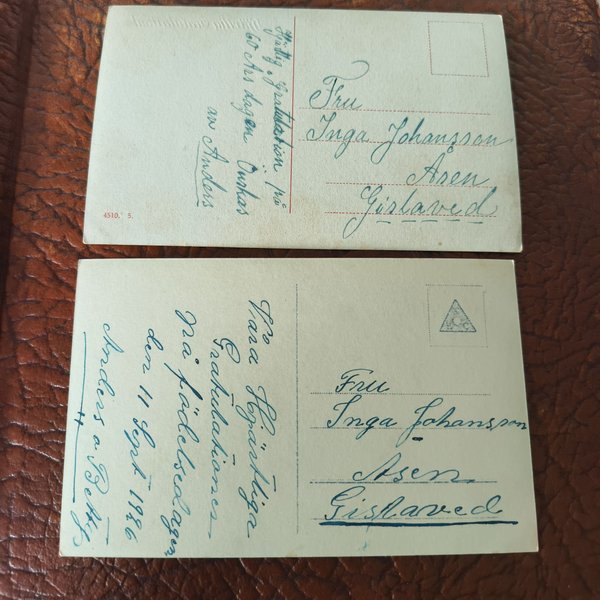 Hjärtlig Gratulation på
60 Års dagen Önskas
av Anders
Fru
Inga Johansson
Åsen
Gislaved
4510. 5.
Våra Hjärtliga
Gratulationer
på födelsedagen
den 11 Sept 1926
Anders o Betty
Fru
Inga Johansson
Åsen
Gislaved